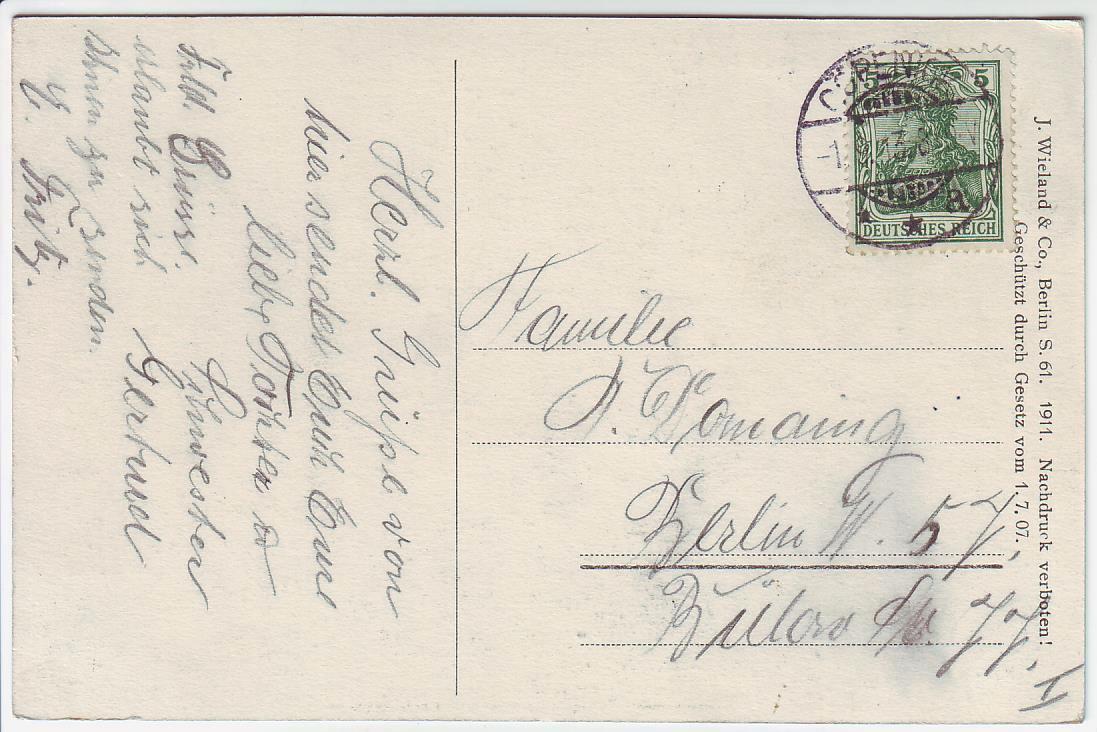 Herzl. Grüße von
hier sendet Euch Eure
lieb. Tochter u
Schwester
Gertrud
Feld. Grüsse.
erlaubt sich
Ihnen zu senden.
Fritz.
5 5
DEUTSCHES REICH
CÖPENICK
a
Familie
A. Domaing
Berlin W. 57,
Bülow Str. 77, I
J. Wieland & Co., Berlin S. 61. 1911. Nachdruck verboten!
Geschützt durch Gesetz vom 1. 7. 07.